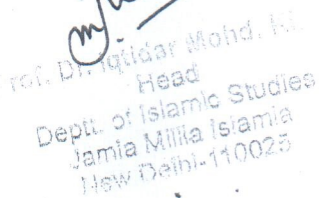 Prof. Dr. Iqtidar Mohd.
Head
Deptt. of Islamic Studies
Jamia Millia Islamia
New Delhi-110025